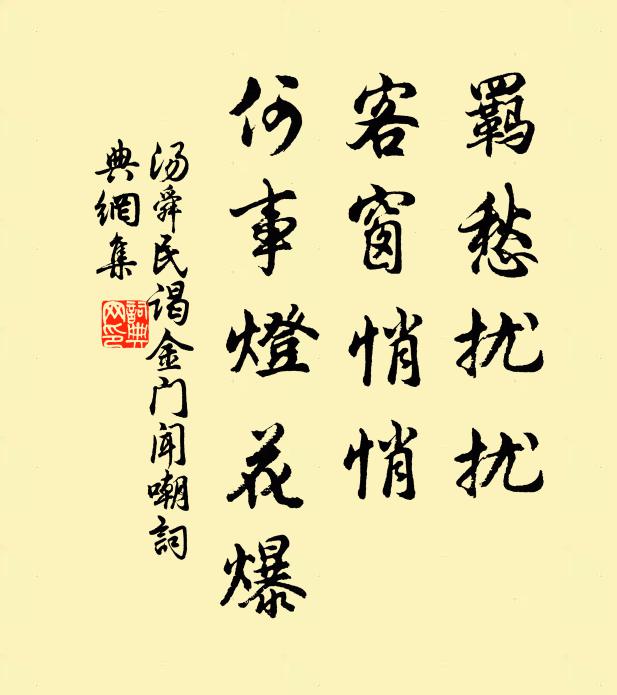 羈愁扰扰
客窗悄悄
何事燈花爆
汤舜民谒金门闻嘲詞
典網集
詞典网印